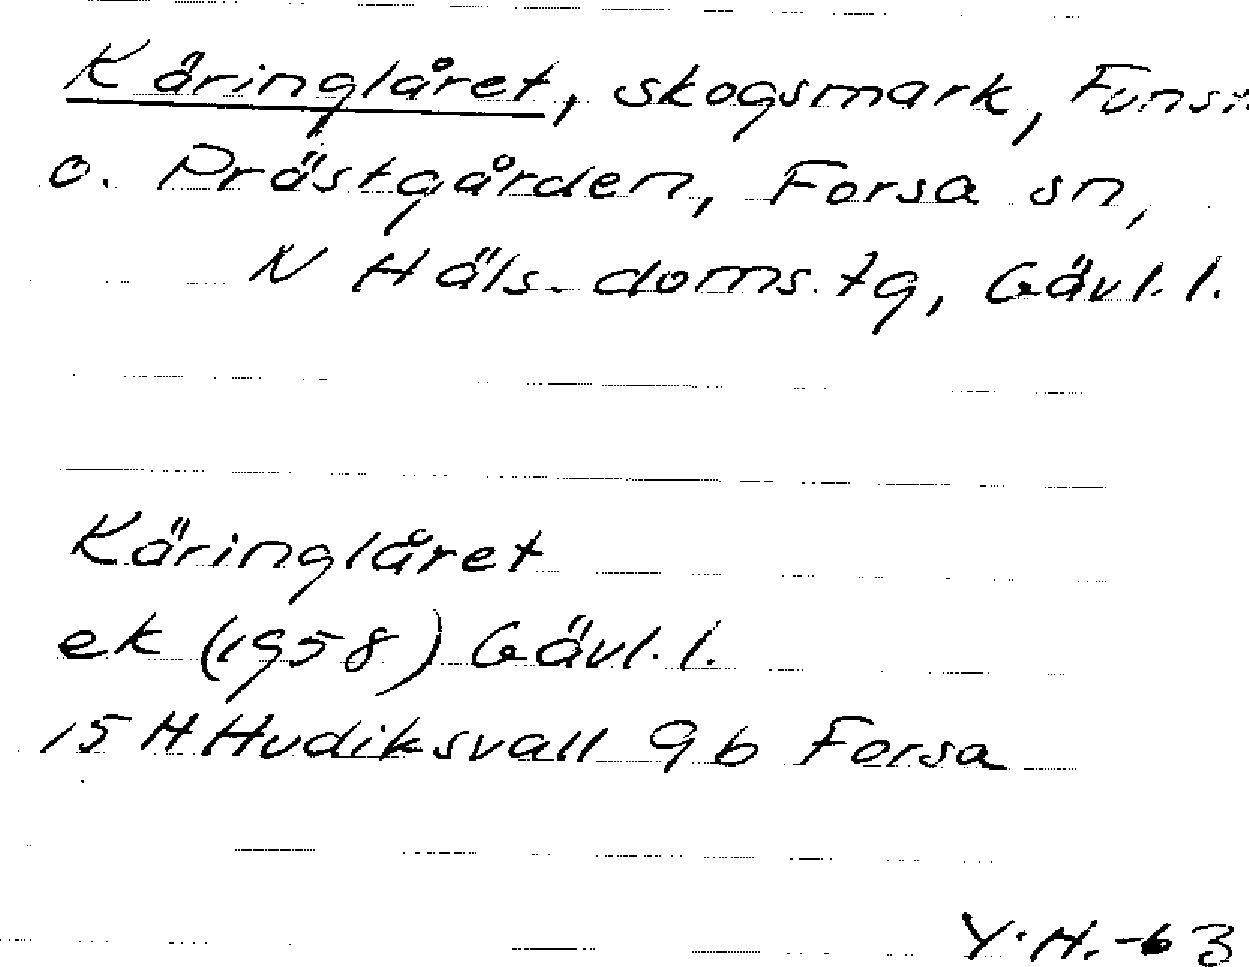 Käringlåret, skogsmark, Funst
o. Prästgården, Forsa sn,
N Häls. doms. tg, Gävl. l.
Käringlåret
ek (1958) Gävl. l.
15 H Hudiksvall 9b Forsa
Y.H. -63